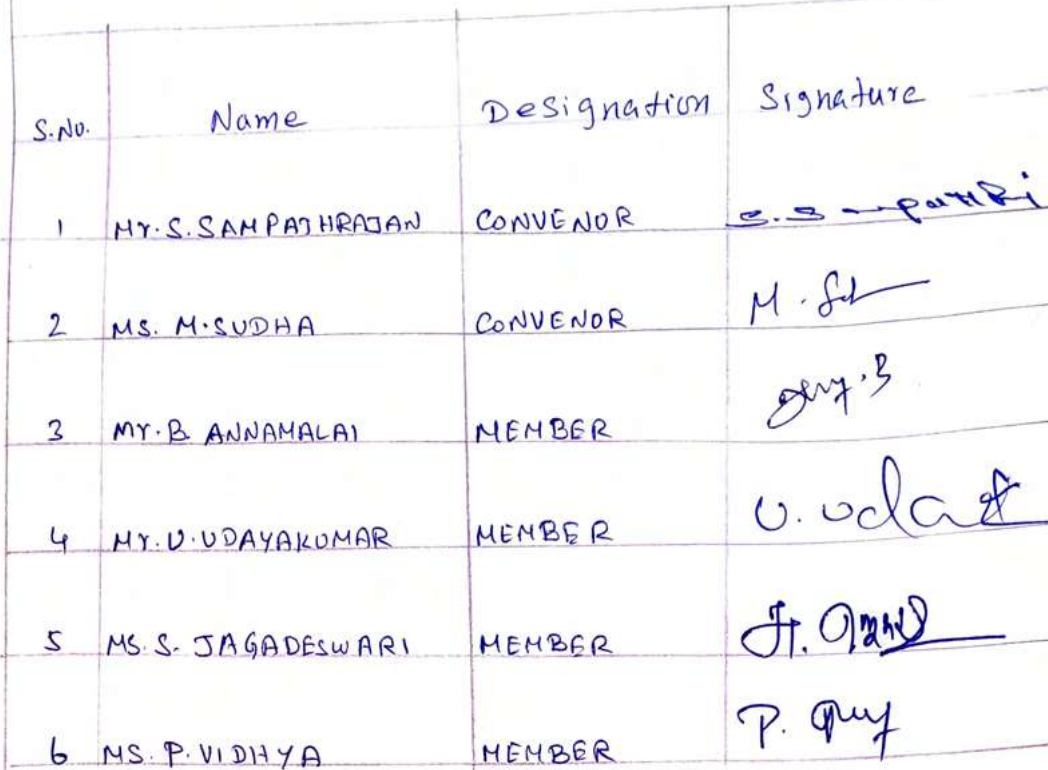 S.No. Name Designation Signature
1 Mr. S. SAMPATHRAJAN CONVENOR
2 MS. M. SUDHA CONVENOR M.
3 Mr. B ANNAMALAI MEMBER
4 Mr. U. UDAYAKUMAR MEMBER U.
5 MS. S. JAGADESWARI MEMBER
6 MS. P. VIDHYA MEMBER P.